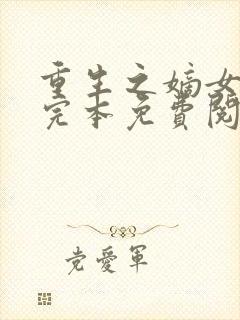 重生之嫡女
完本免費閱
党愛軍